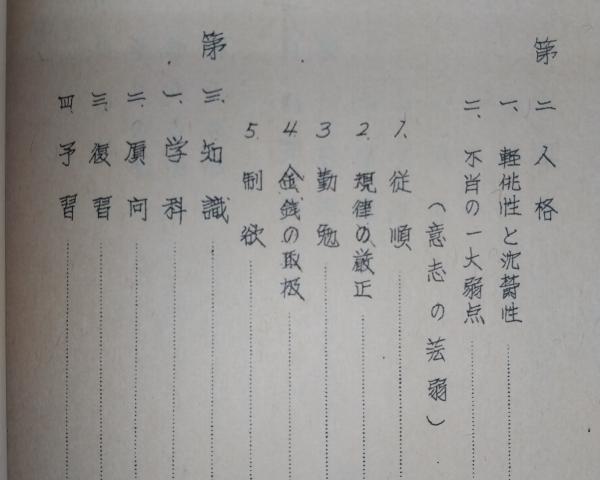 第二 人格
一、軽佻性と沈欝性
二、不肖の一大弱点
（意志の芸弱）
1. 従順
2. 規律の厳正
3 勤勉
4 金銭の取扱
5. 制欲
第三、知識
一、学科
二、傾向
三、復習
四、予習